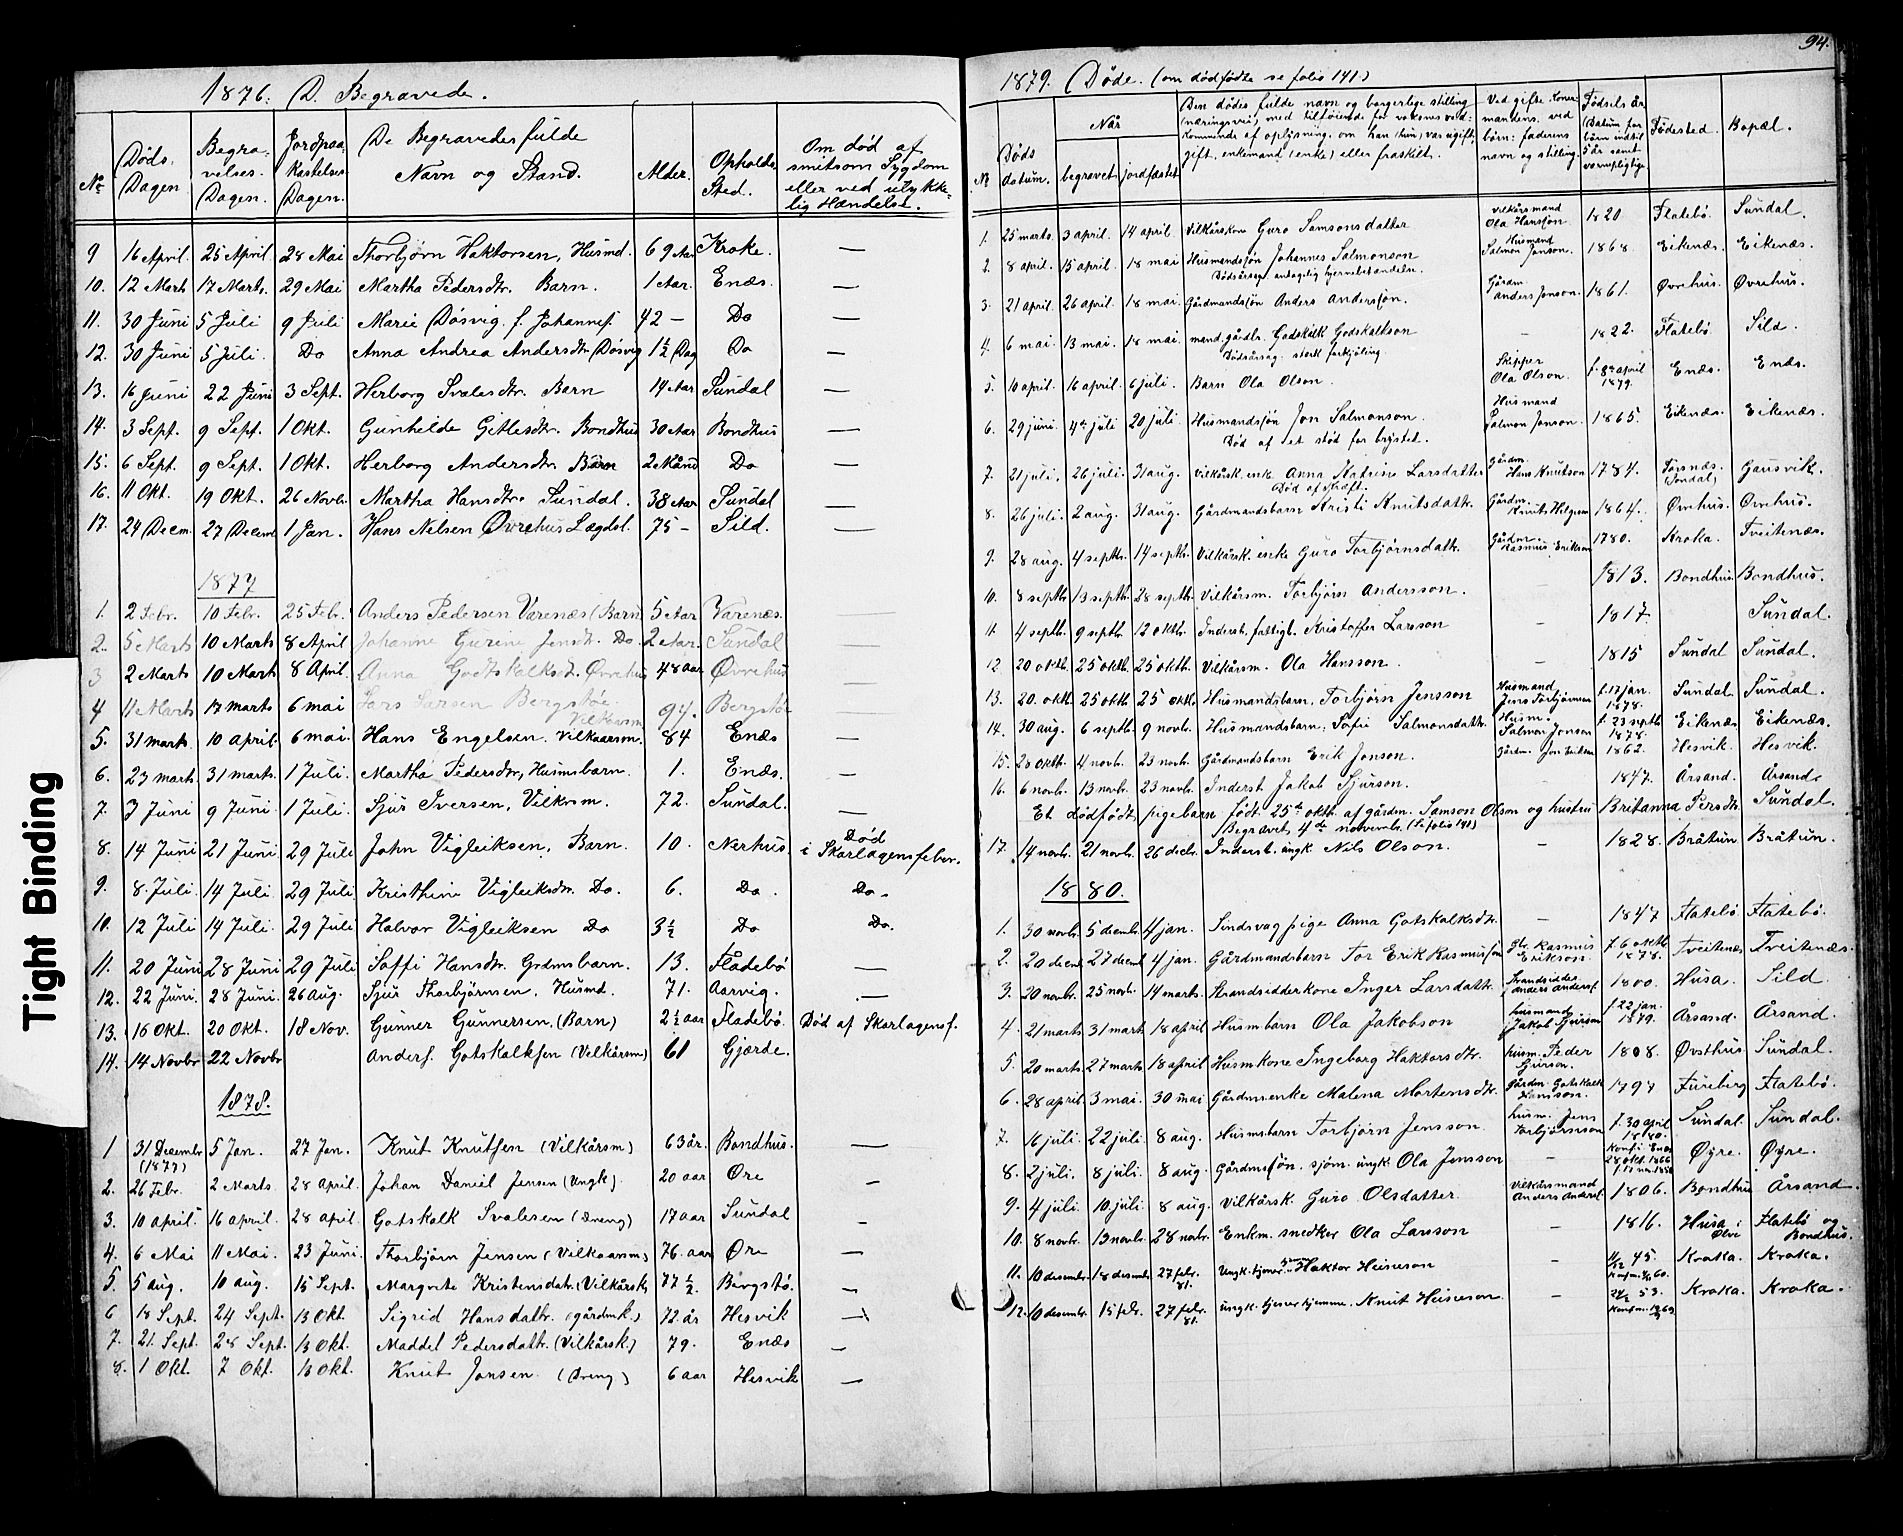 Tight Binding
1876. D. Begravede.
No Døds-Dagen Begravelses-Dagen. Jordpaakastelses Dagen. De Begravedes fulde Navn og Stand. Alder. Opholds Sted. Om død af smitsom Sygdom eller ved ulykkelig Hændelse.
9 16 April. 25 April 28 Mai Thorbjørn Haktorsen, Husmd. 69 Aar Kroke. —
10. 12 Marts 17 Marts. 29 Mai Martha Pedersdtr. Barn. 1 Aar. Enæs. —
11. 30 Juni 5 Juli 9 Juli Marie Døsvig f. Johannes. 42 — Do —
12. 30 Juni 5 Juli. Do Anna Andrea Andersdtr Døsvig 1½ Dag Do —
13. 16 Juni 22 Juni 3 Sept. Herborg Svalesdtr. Barn 14 Aar Sundal —
14. 3 Sept. 9 Sept. 1 Okt. Gunhilde Gitlesdtr. Bondhus 30 Aar Bondhus —
15. 6 Sept. 9 Sept. 1 Okt. Herborg Andersdtr. Barn 2 Månd Do —
16. 11 Okt. 19 Okt. 26 Novbr. Martha Hansdtr. Sundal. 38 Aar Sundal —
17. 24 Decem. 27 Decembr 1 Jan. Hans Nelsen Øvrehus Lægdsl. 75 — Sild. —
1877
1. 2 Febr. 10 Febr. 25 Febr. Anders Pedersen Varenæs (Barn 5 Aar Varenæs. —
2. 5 Marts 10 Marts 8 April Johanne Gurine Jensdt. Do 2 Aar. Sundal —
3 2 Marts 10 Marts 8 April. Anna Godtskalksd. Øvrehus 48 aar Øvrehus —
4 11 Marts 17 marts 6 mai Lars Larsen Bergstøe. Vilkårsm 94. Bergstø —
5. 31 marts. 10 april. 6 mai. Hans Engelsen. Vilkaarsm. 84 Enæs —
6. 23 marts. 31 marts. 1 Juli. Martha Pedersdtr, Husmsbarn. 1. Enæs. —
7. 3 Juni 9 Juni 1 Juli. Sjur Iversen, Vilkrsm. 72. Sundal. —
8. 14 Juni 21 Juni 29 Juli John Vigleiksen, Barn. 10. Nerhus. Død i Skarlagensfeber.
9. 8. Juli. 14 Juli 29 Juli Kristhine Vigleiksdtr. Do. 6. Do. Do.
10. 12 Juli 14 Juli. 29 Juli Halvor Vigleiksen Do 3½ Do Do.
11. 20 Juni 28 Juni 29 Juli Soffi Hansdtr. Grdmsbarn. 13. Fladebø —
12. 22 Juni. 28 Juni. 26 Aug. Sjur Thorbjørnsen, Husmd. 71. Aarvig. —
13. 16 Okt. 20 Okt. 18 Nov. Gunner Gunnersen, (Barn) 2½ aar Fladebø. Død af Skarlagensf.
14. 14 Novbr 22 Novbr Anders. Gotskalksen (Vilkårsm) 61 Gjærde.
1878.
1 31 Decembr (1877) 5 Jan. 27 Jan. Knut Knutsen (Vilkårsm) 63 år. Bondhus. —
2. 26 Febr. 2 Marts. 28 April. Johan Daniel Jensen (Ungk) 20 aar Øre —
3. 10 april. 16 april. 28 april. Gotskalk Svalesen (Dreng) 17 aar Sundal —
4. 6 Mai 11 Mai. 23 Juni. Thorbjørn Jensen (Vilkaarsm) 76. aar Øre —
5. 5 aug. 10 aug. 15 Sept. Margrete Kristensdatr. (Vilkårsk) 77½. Bergstø. —
6 18 Sept. 24 Sept. 13 Okt. Sigrid Hansdattr. (gårdmk.) 72. år Hesvik —
7. 21 Sept. 28 Sept. 13 Okt. Maddel Pedersdattr. (Vilkårsk.) 79. Enæs —
8. 1 Okt. 7 Okt. 13 Okt. Knut Jonsen (Dreng) 6 aar Hesvik —
94.
1879. Døde. (om dødfødte se folio 141)
No Døds datum. Når begravet jordfæstet Den dødes fulde navn og borgerlige stilling (næringsvei) med tilføiende for voksnes vedkommende af oplysning, om han (hun) var ugift, gift, enkemand (enke) eller fraskilt. Ved gifte koner: mandens, ved børn: faderens navn og stilling. Fødsels år (Datum for børn indtil 5 år samt vernepligtige Fødested. Bopæl.
1. 25 marts. 3 april. 14 april. Vilkårskone Guro Samsonsdatter Vilkårsmand Ola Hansson. 1820 Flatebø. Sundal.
2. 8 april. 15 april. 18 mai Husmandssøn Johannes Salmonson Husmand Salmon Jonson. 1868. Eikenæs. Eikenæs.
Dødsårsag antagelig hjernebetændelse.
3. 21 april. 26 april. 18 mai. Gårdmandssøn Anders Anderssøn. Gårdm. Anders Jonson. 1861. Øvrehus. Øvrehus.
4. 6 mai. 13 mai. 18 mai. mand, gårdbr. Godskalk Godskalkson — 1822. Flatebø Sild.
Dødsårsag. sterk forkjøling.
5. 10 april. 16 april. 6 juli. Barn Ola Olson. Skipper Ola Olson. f. 8de april 1879. Enæs. Enæs.
6. 29 juni. 4de juli 20 juli. Husmandssøn Jon Salmonson. Husmand Salmon Jonson. 1865. Eikenæs. Eikenæs.
Død af et stød for brystet.
7. 21 juli. 26 juli. 31 aug. Vilkårsk. enk. Anna Katrine Larsdatter Gårdm. Hans Knutson 1784. Gausvik.
Død af Kræft.
8. 26 juli. 2 aug. 31 aug. Gårdmandsbarn Kristi Knutsdattr. Gårdm. Knut Helgeson 1864. Øvrehus. Øvrehus.
9. 28 aug. 4 septbr. 14 septbr. Vilkårsk. enke Guro Torbjørnsdattr. Gårdm. Rasmus Erikson 1780. Kroka. Tveitenæs.
10. 8 septbr 13 septbr 28 septbr. Vilkårsm. Torbjørn Andersson. — 1813. Bondhus Bondhus.
11. 4 septbr. 9 septbr 12 oktbr. Inderst, fattigl. Kristoffer Larsson — 1817. Sundal.
12 20 oktbr. 25 oktbr. 25 oktbr. Vilkårsm. Ola Hansson. — 1815 Sundal Sundal.
13. 20. oktbr 25 oktbr 25 oktbr. Husmandsbarn, Torbjørn Jensson Husmand Jens Torbjørnson f. 17 jan. 1878. Sundal. Sundal.
14. 30 aug. 6 septbr. 9 novbr. Husmandsbarn, Sofie Salmonsdattr. Husm. Salmon Jonson f. 23 septbr 1878. Eikenæs Eikenæs.
15. 28 oktbr. 4 novbr. 23 novbr. Gårdmandsbarn Erik Jonson. Gårdm. Jon Erikson 1862. Hesvik. Hesvik.
16. 6 novbr. 13 novbr. 23 novbr. Inderst Jakob Sjurson. — 1847. Årsand. Årsand.
Et dødfødt pigebarn født 25de oktbr. af gårdm. Samson Olson og hustru Britanna Persdtr. Sundal.
Begravet 4de novembr. (Se folio 141)
17. 14 novbr. 21 novbr. 26 decbr. Inderst. ungk Nils Olson. — 1828. Bråtun Bråtun.
1880.
1. 30 novbr. 5 decembr. 4 jan. Sindsvag pige Anna Gotskalksdtr. — 1847 Flatebø. Flatebø.
2. 20 decembr 27 decembr 4 jan. Gårdmandsbarn Tor Erik Rasmussøn Gbr. Rasmus Erikson. f. 6 oktbr. 1878. Tveitenæs Tveitenæs.
3. 20 novbr. 25 novbr. 14 marts. Strandsidderkone Inger Larsdattr. Strandsidder Anders Anders. 1800. Husa. Sild
4. 21 marts 31 marts 18 april Husmbarn Ola Jakobson husmand Jakob Sjurson f. 22 jan. 1879. Årsand. Årsand.
5. 20 marts. 27 marts 18 april Husmkone Ingeborg Haktorsdtr. husm. Peder Sjurson. 1808. Øvsthus. Sundal.
6. 28 april. 3 mai. 30 mai Gårdmsenke Malena Mortensdtr. gårdm. Gotskalk 1797 Fureberg Flatebø.
7. 16 juli. 22 juli. 8 aug. Husmsbarn Torbjørn Jensson. husm. Jens Torbjørnson f. 30 april 1880. Sundal. Sundal.
8. 2 juli. 8 juli. 8 aug. Gårdmssøn. sjøm. ungk Ola Jensson — Konf. i Enæs 28 okt. 1866 Øyre. Øyre.
9. 4 juli. 10 juli. 8 aug. Vilkårsk. Guro Olsdatter. Vilkårsmand Anders Anders. 1806. Bondhus Årsand.
10. 8 novbr. 13 novbr. 28 novbr. Enkm. snedker Ola Larsson — 1816. Husa i Ølve Flatebø og Bondhus.
11. 10 desembr. 18 desembr. 27 febr. 81. Ungk. tjener hjemme Haktor Heineson — 45. Kroka. Kroka.
12. 10 desembr. 15 febr. 27 febr. 81. Ungk. tjener hjemme. Knut Heineson — 53. Kroka. Kroka.